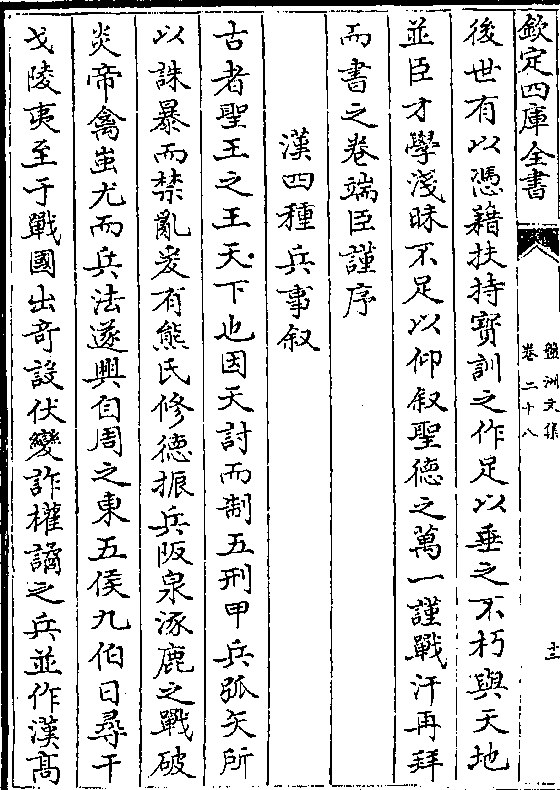 欽定四庫全書
盤洲文集
卷二十八
十二
後世有以憑藉扶持寳訓之作足以垂之不朽與天地
並臣才學淺昧不足以仰叙聖德之萬一謹戰汗再拜
而書之卷端臣謹序
漢四種兵事叙
古者聖王之王天下也因天討而制五刑甲兵弧矢所
以誅暴而禁亂爰有熊氏修德振兵阪泉涿鹿之戰破
炎帝禽蚩尤而兵法遂興自周之東五侯九伯日尋干
戈陵夷至于戰國出竒設伏變詐權譎之兵並作漢髙